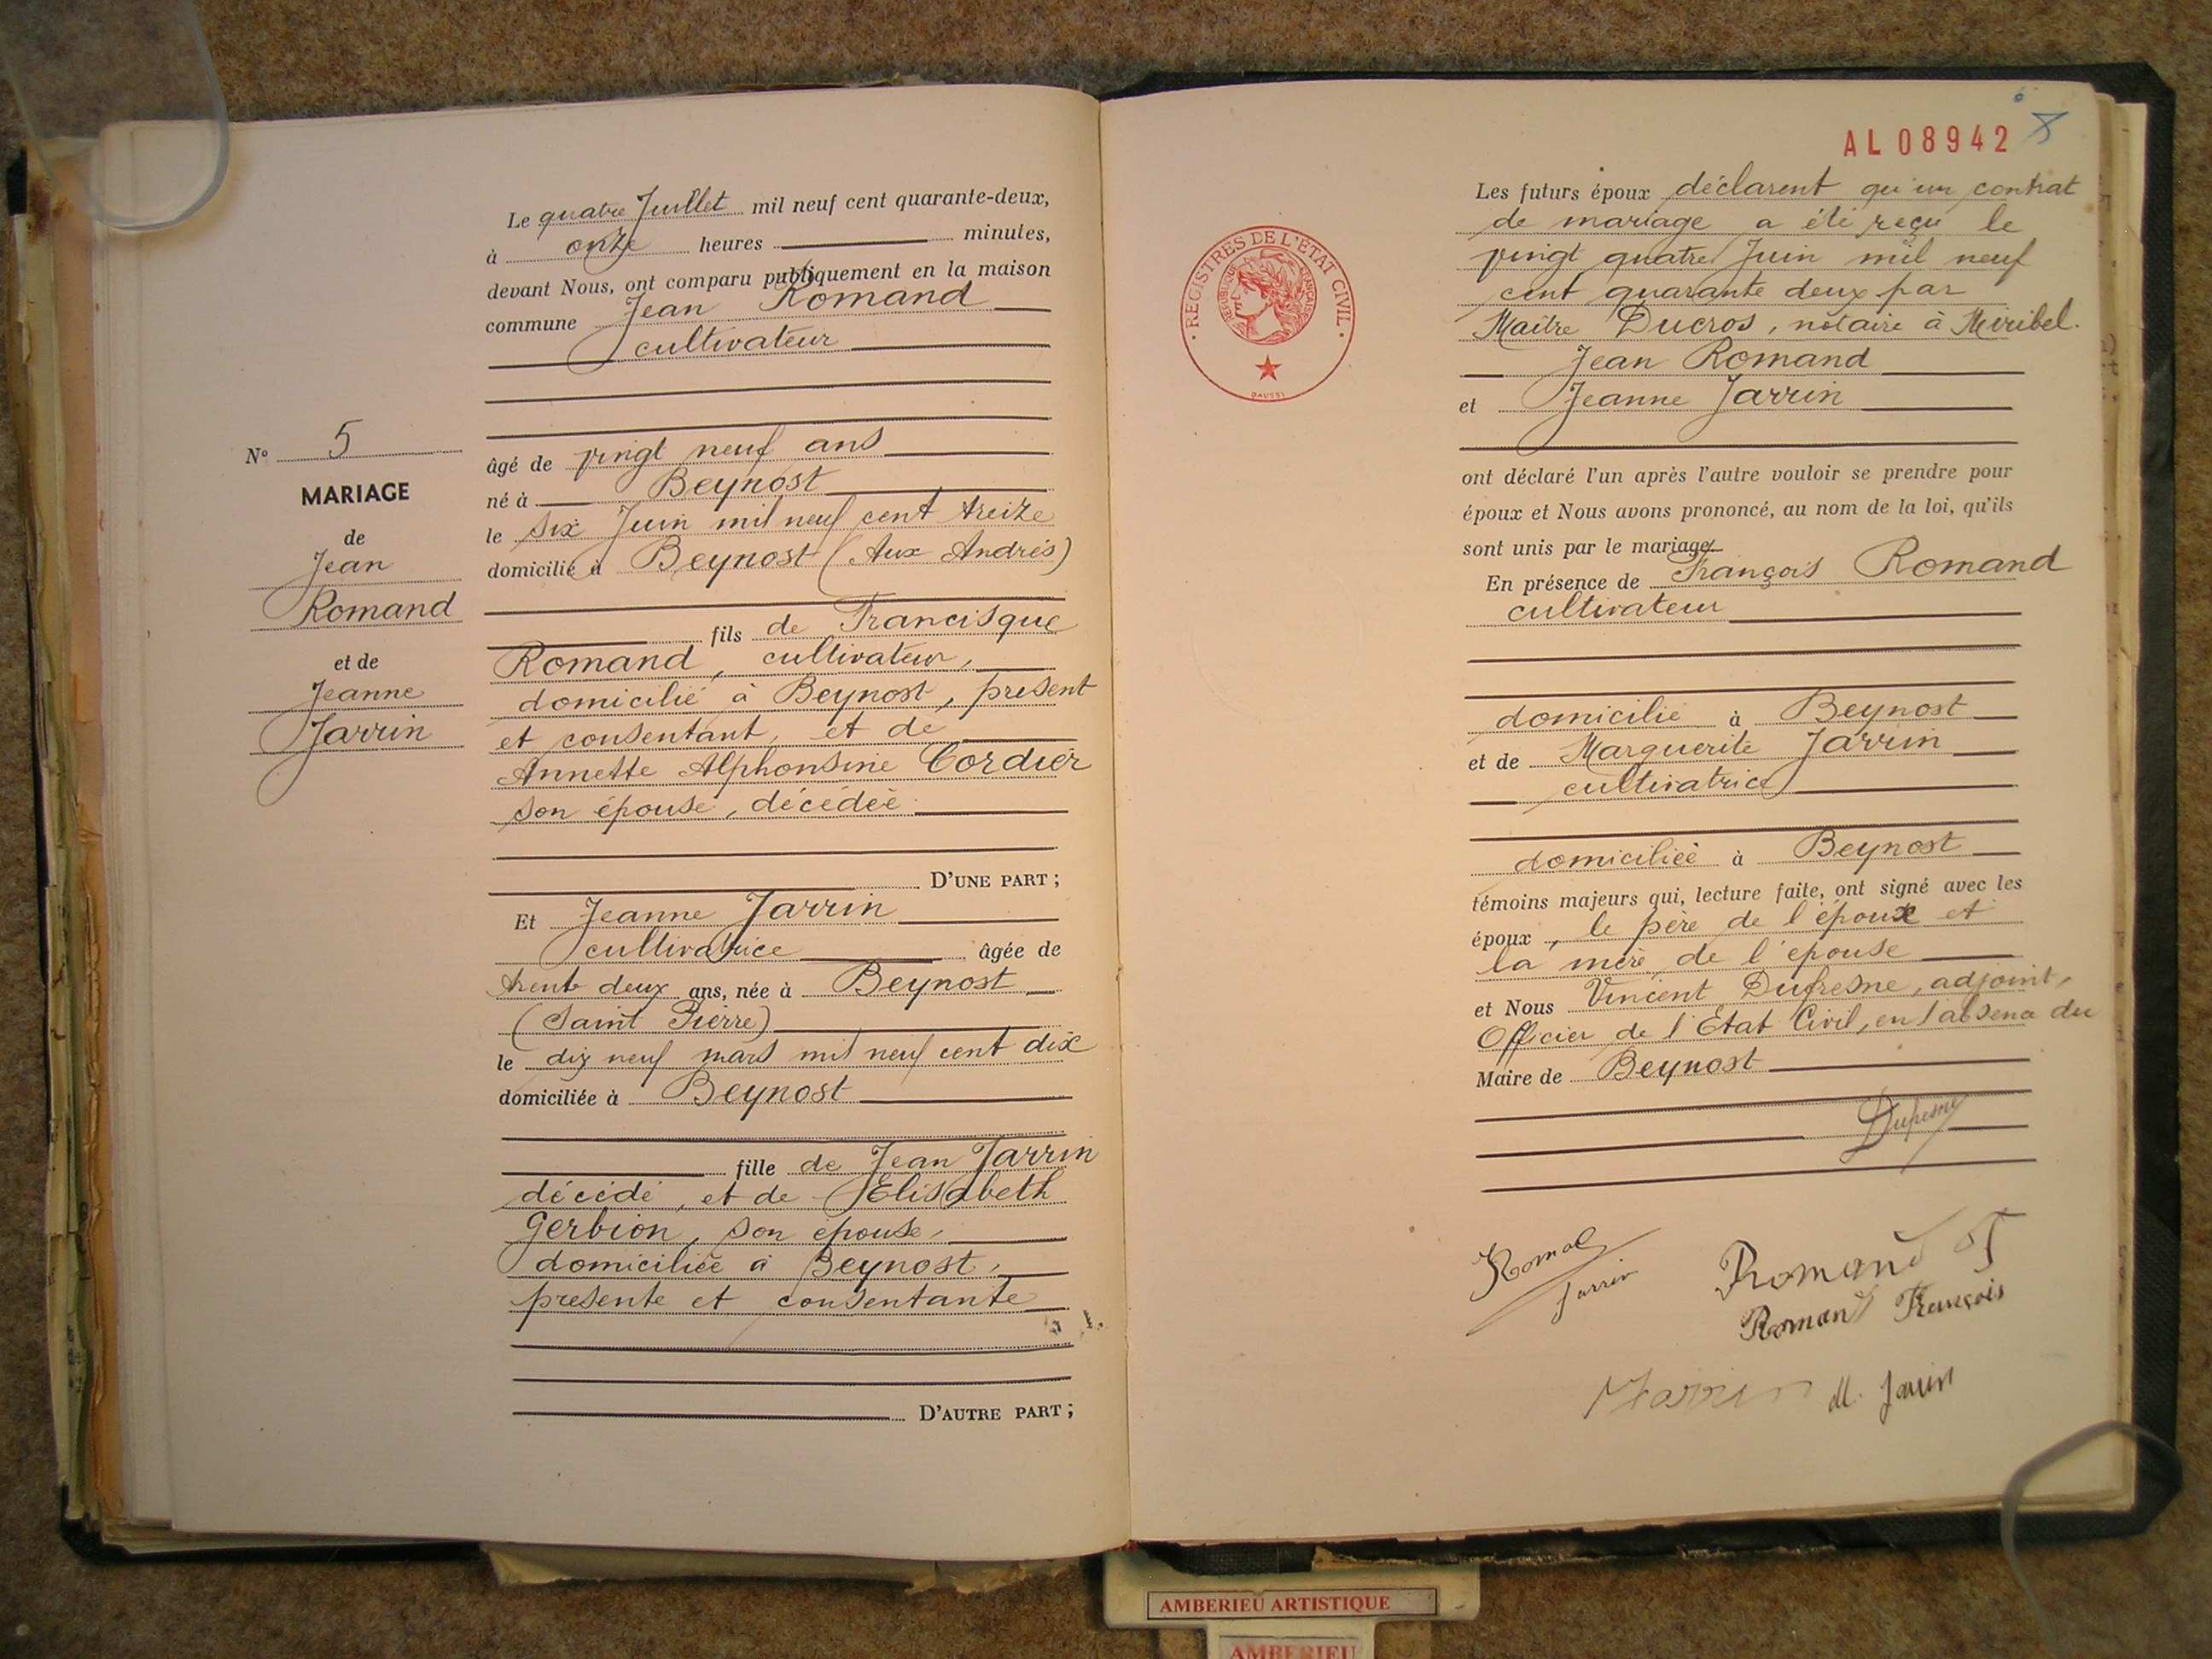 N° 5
MARIAGE
de
Jean
Romand
et de
Jeanne
Jarrin
Le quatre Juillet mil neuf cent quarante-deux,
à onze heures minutes,
devant Nous, ont comparu publiquement en la maison
commune Jean Romand
cultivateur
âgé de vingt neuf ans
né à Beynost
le six Juin mil neuf cent treize
domicilié à Beynost (Aux Andrés)
fils de Francisque
Romand, cultivateur,
domicilié à Beynost, présent
et consentant, et de
Annette Alphonsine Cordier
son épouse, décédée
D'UNE PART ;
Et Jeanne Jarrin
cultivatrice âgée de
trente deux ans, née à Beynost
(Saint Pierre)
le dix neuf mars mil neuf cent dix
domiciliée à Beynost
fille de Jean Jarrin
décédé, et de Elisabeth
Gerbion, son épouse,
domiciliée à Beynost,
présente et consentante
D'AUTRE PART ;
AL 08942
8
REGISTRES DE L'ETAT CIVIL
REPUBLIQUE FRANÇAISE
DAUSSY
Les futurs époux déclarent qu'un contrat
de mariage a été reçu le
vingt quatre Juin mil neuf
cent quarante deux par
Maître Ducros, notaire à Miribel.
Jean Romand
et Jeanne Jarrin
ont déclaré l'un après l'autre vouloir se prendre pour
époux et Nous avons prononcé, au nom de la loi, qu'ils
sont unis par le mariage
En présence de François Romand
cultivateur
domicilié à Beynost
et de Marguerite Jarrin
cultivatrice
domiciliée à Beynost
témoins majeurs qui, lecture faite, ont signé avec les
époux, le père de l'époux et
la mère de l'épouse
et Nous Vincent Dufresne, adjoint,
Officier de l'Etat Civil, en l'absence du
Maire de Beynost
Dufresne
Jarrin
Romand F
Romand François
Jarrin M. Jarrin
AMBERIEU ARTISTIQUE
AMBERIEU